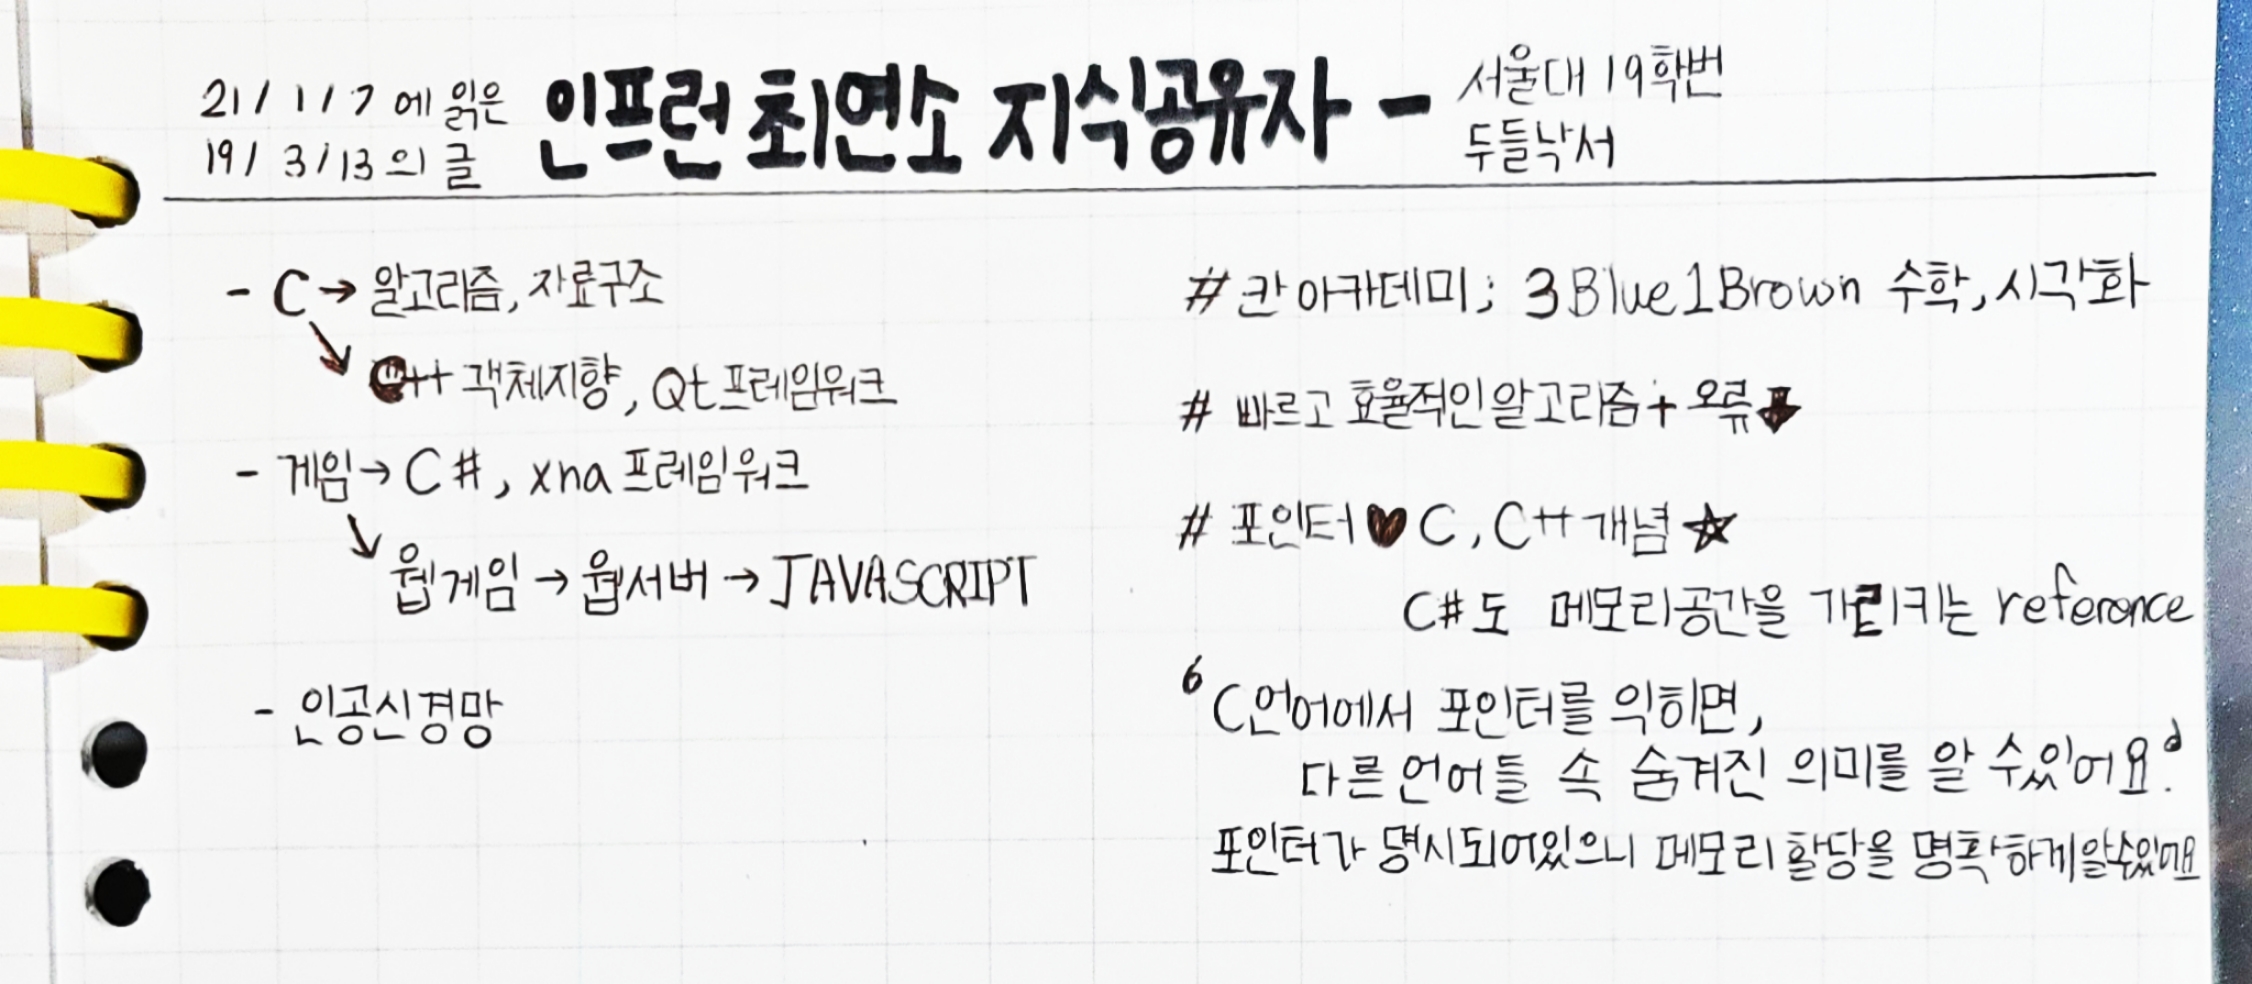 21/1/7에 읽은
19/3/13의 글
인프런 최연소 지식공유자 -
서울대 19학번
두들낙서
- C → 알고리즘, 자료구조
↘ C++ 객체지향, Qt 프레임워크
- 게임 → C#, xna 프레임워크
↘ 웹게임 → 웹서버 → JAVASCRIPT
- 인공신경망
# 칸 아카데미; 3Blue1Brown 수학, 시각화
# 빠르고 효율적인 알고리즘 + 오류⬇
# 포인터♥ C, C++ 개념 ☆
C#도 메모리공간을 가리키는 reference
6 C언어에서 포인터를 익히면,
다른 언어들 속 숨겨진 의미를 알 수있어요.
포인터가 명시되어있으니 메모리 할당을 명확하게알수있어요